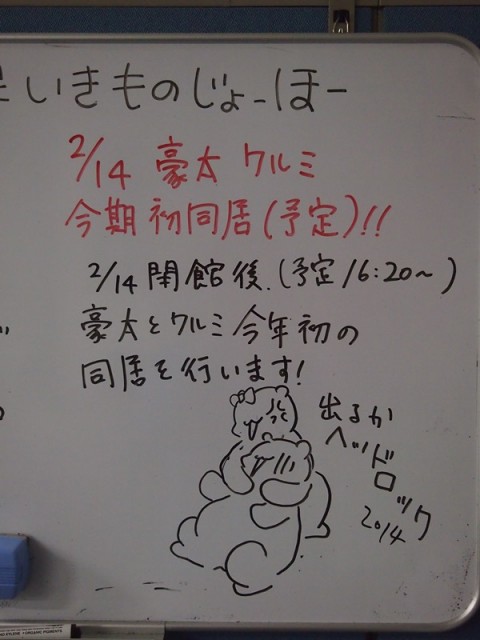 いきものじょーほー
2/14 豪太 クルミ
今期初同居(予定)!!
2/14 閉館後.(予定16:20～)
豪太とクルミ今年初の
同居を行います!
出るか
ヘッドロック
2014